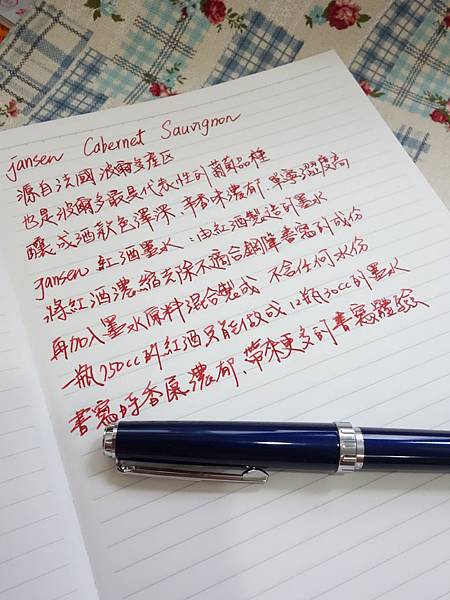 jansen Cabernet Sauvignon
源自法國波爾多產区
也是波爾多最具代表性的葡萄品種
釀成酒款色澤深、辛香味濃郁、單寧澀度高
jansen 紅酒墨水：由紅酒製造的墨水
將紅酒濃縮去除不適合鋼筆書寫的成份
再加入墨水原料混合製成 不含任何水份
一瓶750cc的紅酒只能做成12瓶30cc的墨水
書寫時香氣濃郁、帶來更多的書寫體驗